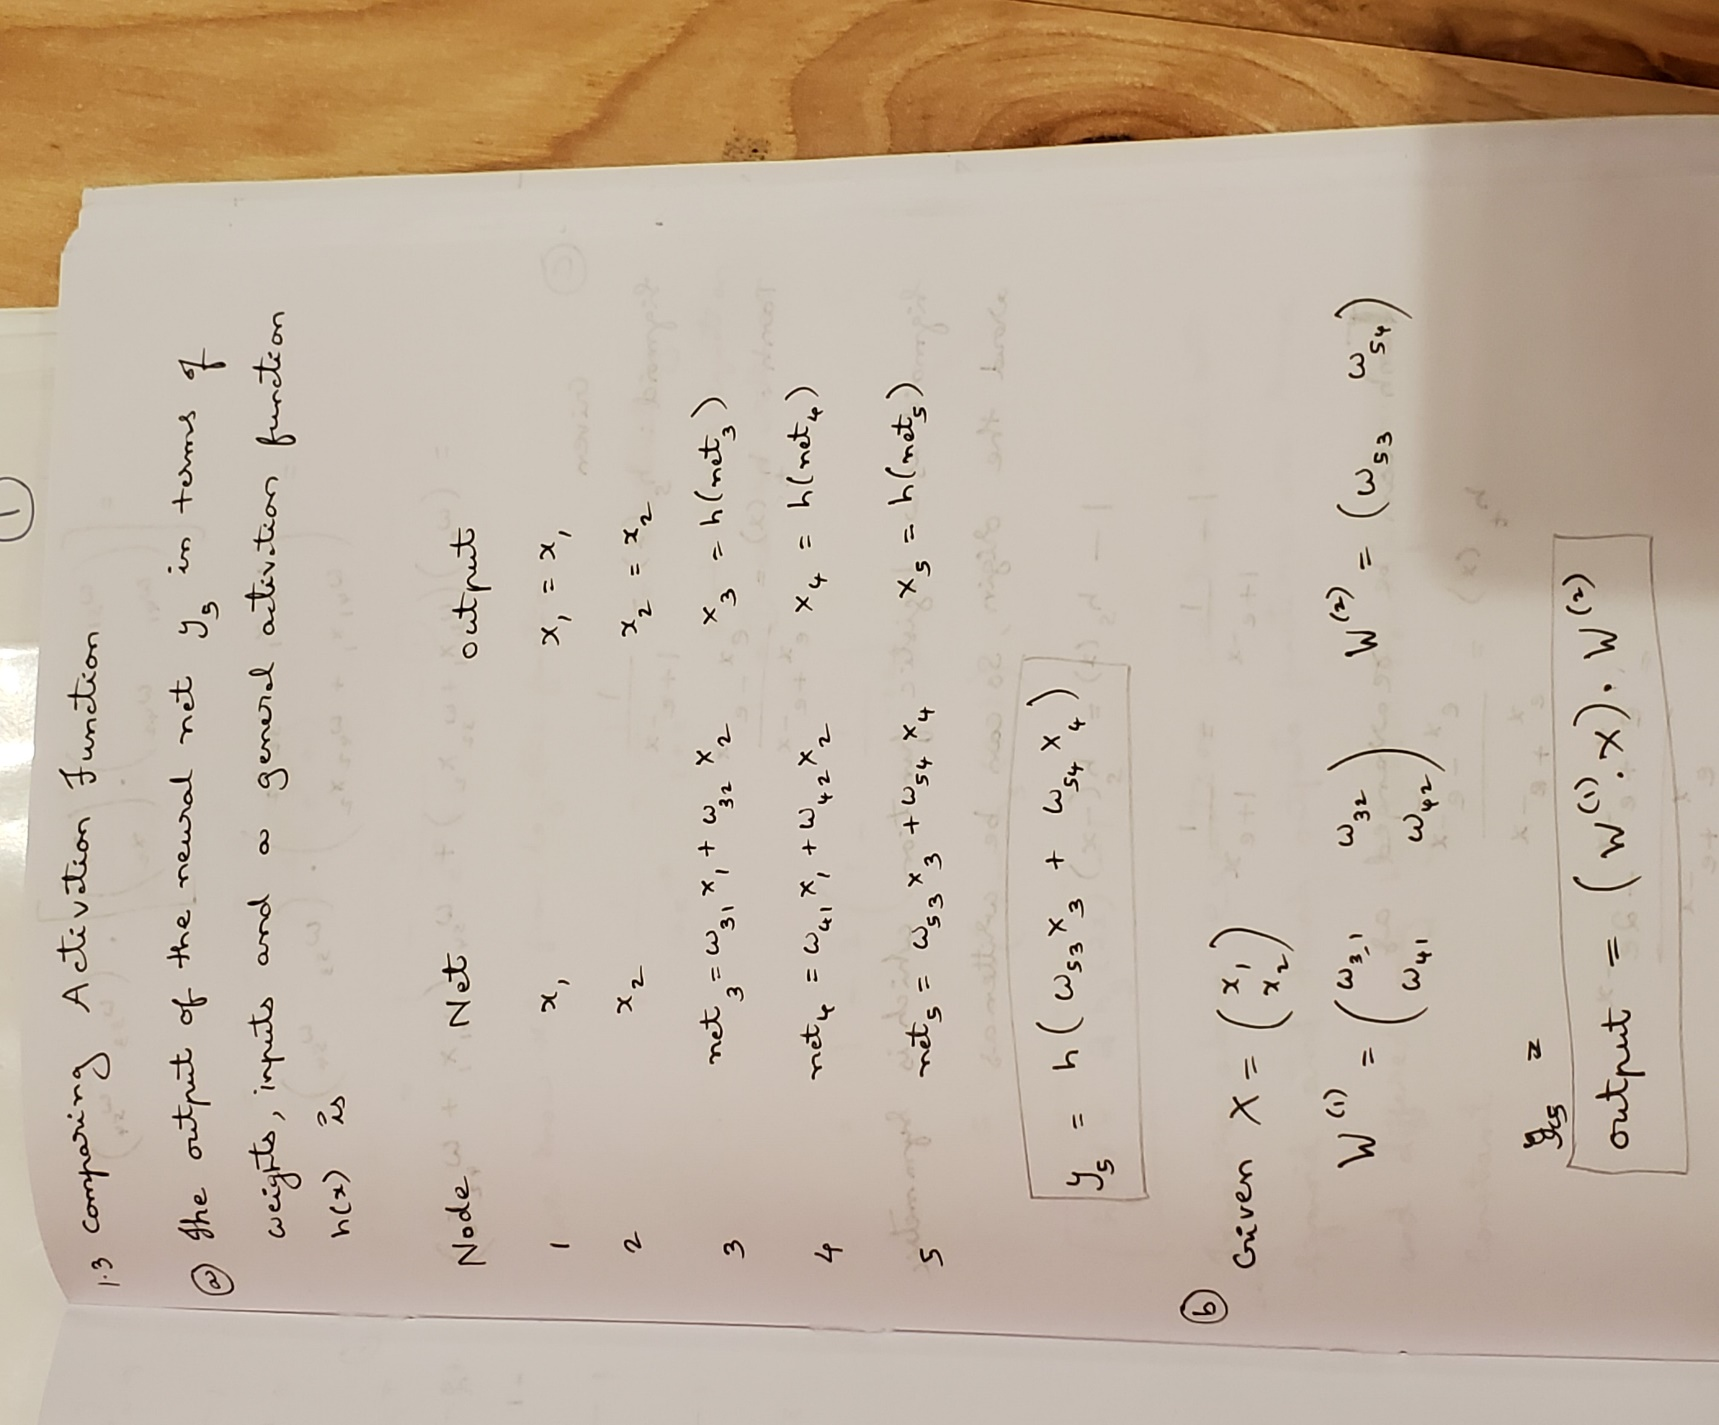 1
1.3 Comparing Activation Function
(a) The output of the neural net y₅ in terms of
weights, inputs and a general activation function
h(x) is
Node Net output
1 x₁ x₁ = x₁
2 x₂ x₂ = x₂
3 net₃ = ω₃₁x₁ + ω₃₂x₂ x₃ = h(net₃)
4 net₄ = ω₄₁x₁ + ω₄₂x₂ x₄ = h(net₄)
5 net₅ = ω₅₃x₃ + ω₅₄x₄ x₅ = h(net₅)
y₅ = h(ω₅₃x₃ + ω₅₄x₄)
(b) Given X = (x₁ x₂)
W⁽¹⁾ = (ω₃,₁ ω₃₂ ω₄₁ ω₄₂) W⁽²⁾ = (ω₅₃ ω₅₄)
output = (W⁽¹⁾.X).W⁽²⁾